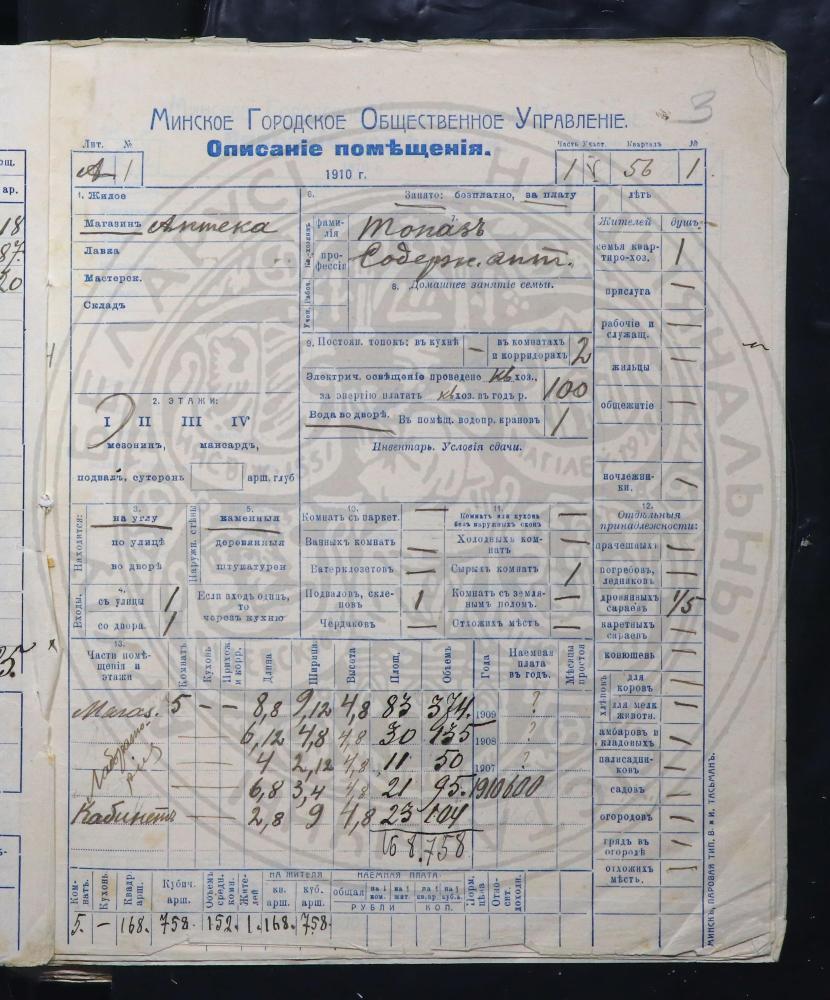 3
Минское Городское Общественное Управленіе.
Лит. №
Описаніе помѣщенія.
Часть Участ. Кварталъ №
А 1
1910 г.
1 5 56 1
1. Жилое
6. Занято: безплатно, за плату
лѣтъ
Магазинъ Аптека
фами-
лія
7.
Топазъ
Жителей душъ
Лавка
про-
фессія
Содерж. апт.
семья квар-
тиро-хоз. 1
Мастерск.
8. Домашнее занятіе семьи.
прислуга —
Складъ
рабочіе и
служащ. —
9. Постоян. топокъ: въ кухнѣ — въ комнатахъ
и корридорахъ 2
жильцы —
Электрич. освѣщеніе проведено кв хоз.,
за энергію платятъ кв хоз. въ годъ р. 100
2. ЭТАЖИ:
общежитіе —
I II III IV
Вода во дворѣ. Въ помѣщ. водопр. крановъ 1
мезонинъ, мансардъ,
Инвентарь. Условія сдачи.
подвалъ, сутеренъ арш. глуб
ночлежни-
ки. —
Находится:
3.
на углу
по улицѣ
во дворѣ
Наружн. стѣны
5.
каменныя
деревянныя
штукатурен
10.
Комнатъ съ паркет. —
Ванныхъ комнатъ —
Ватерклозетовъ —
Подваловъ, скле-
повъ 1
Чердаковъ —
11.
Комнатъ или кухонь
безъ наружныхъ оконъ —
Холодныхъ ком-
натъ —
Сырыхъ комнатъ 1
Комнатъ съ земля-
нымъ поломъ. —
Отхожихъ мѣстъ —
12.
Отдѣльныя
принадлежности:
прачешныхъ —
погребовъ,
ледниковъ —
дровяныхъ
сараевъ 1/5
каретныхъ
сараевъ —
Входы.
4.
съ улицы 1
со двора 1
Если входъ одинъ,
то
черезъ кухню
13.
Части помѣ-
щенія и
этажи
Комнатъ
Кухонь
Прихож.
и корр.
Длина
Ширина
Высота
Площ.
Объемъ
Года
Наемная
плата
въ годъ.
Мѣсяцы
простоя
конюшенъ —
хлѣвовъ
для
коровъ —
для мелк
животн. —
Магаз. 5 — — 8,8 9,12 4,8 83 374. 1909 ?
амбаровъ и
кладовыхъ —
6,12 4,8 4,8 30 135 1908 ?
Лаборато-
рія
4 2,12 4,8 11 50 1907 ?
палисадни-
ковъ —
6,8 3,4 4,8 21 95. 1910 600
садовъ —
Кабинетъ 2,8 9 4,8 23 104
огородовъ —
168. 758
грядъ въ
огородѣ —
отхожихъ
мѣстъ. —
Ком-
натъ.
Кухонь.
Квадр
арш.
Кубич.
арш.
Объемъ
средн.
комн.
Жите-
лей
НА ЖИТЕЛЯ
кв.
арш.
куб.
арш.
НАЕМНАЯ ПЛАТА
общая
на 1
ком.
на 1
жит.
на 1
кв.ар
на 1
куб.а.
РУБЛИ КОП.
Норм.
цѣна
Отно-
сит.
доходн.
5. — 168. 758. 152. 1. 168. 758.
МИНСКЪ, ПАРОВАЯ ТИП. В. и И. ТАСЬМАНЪ.